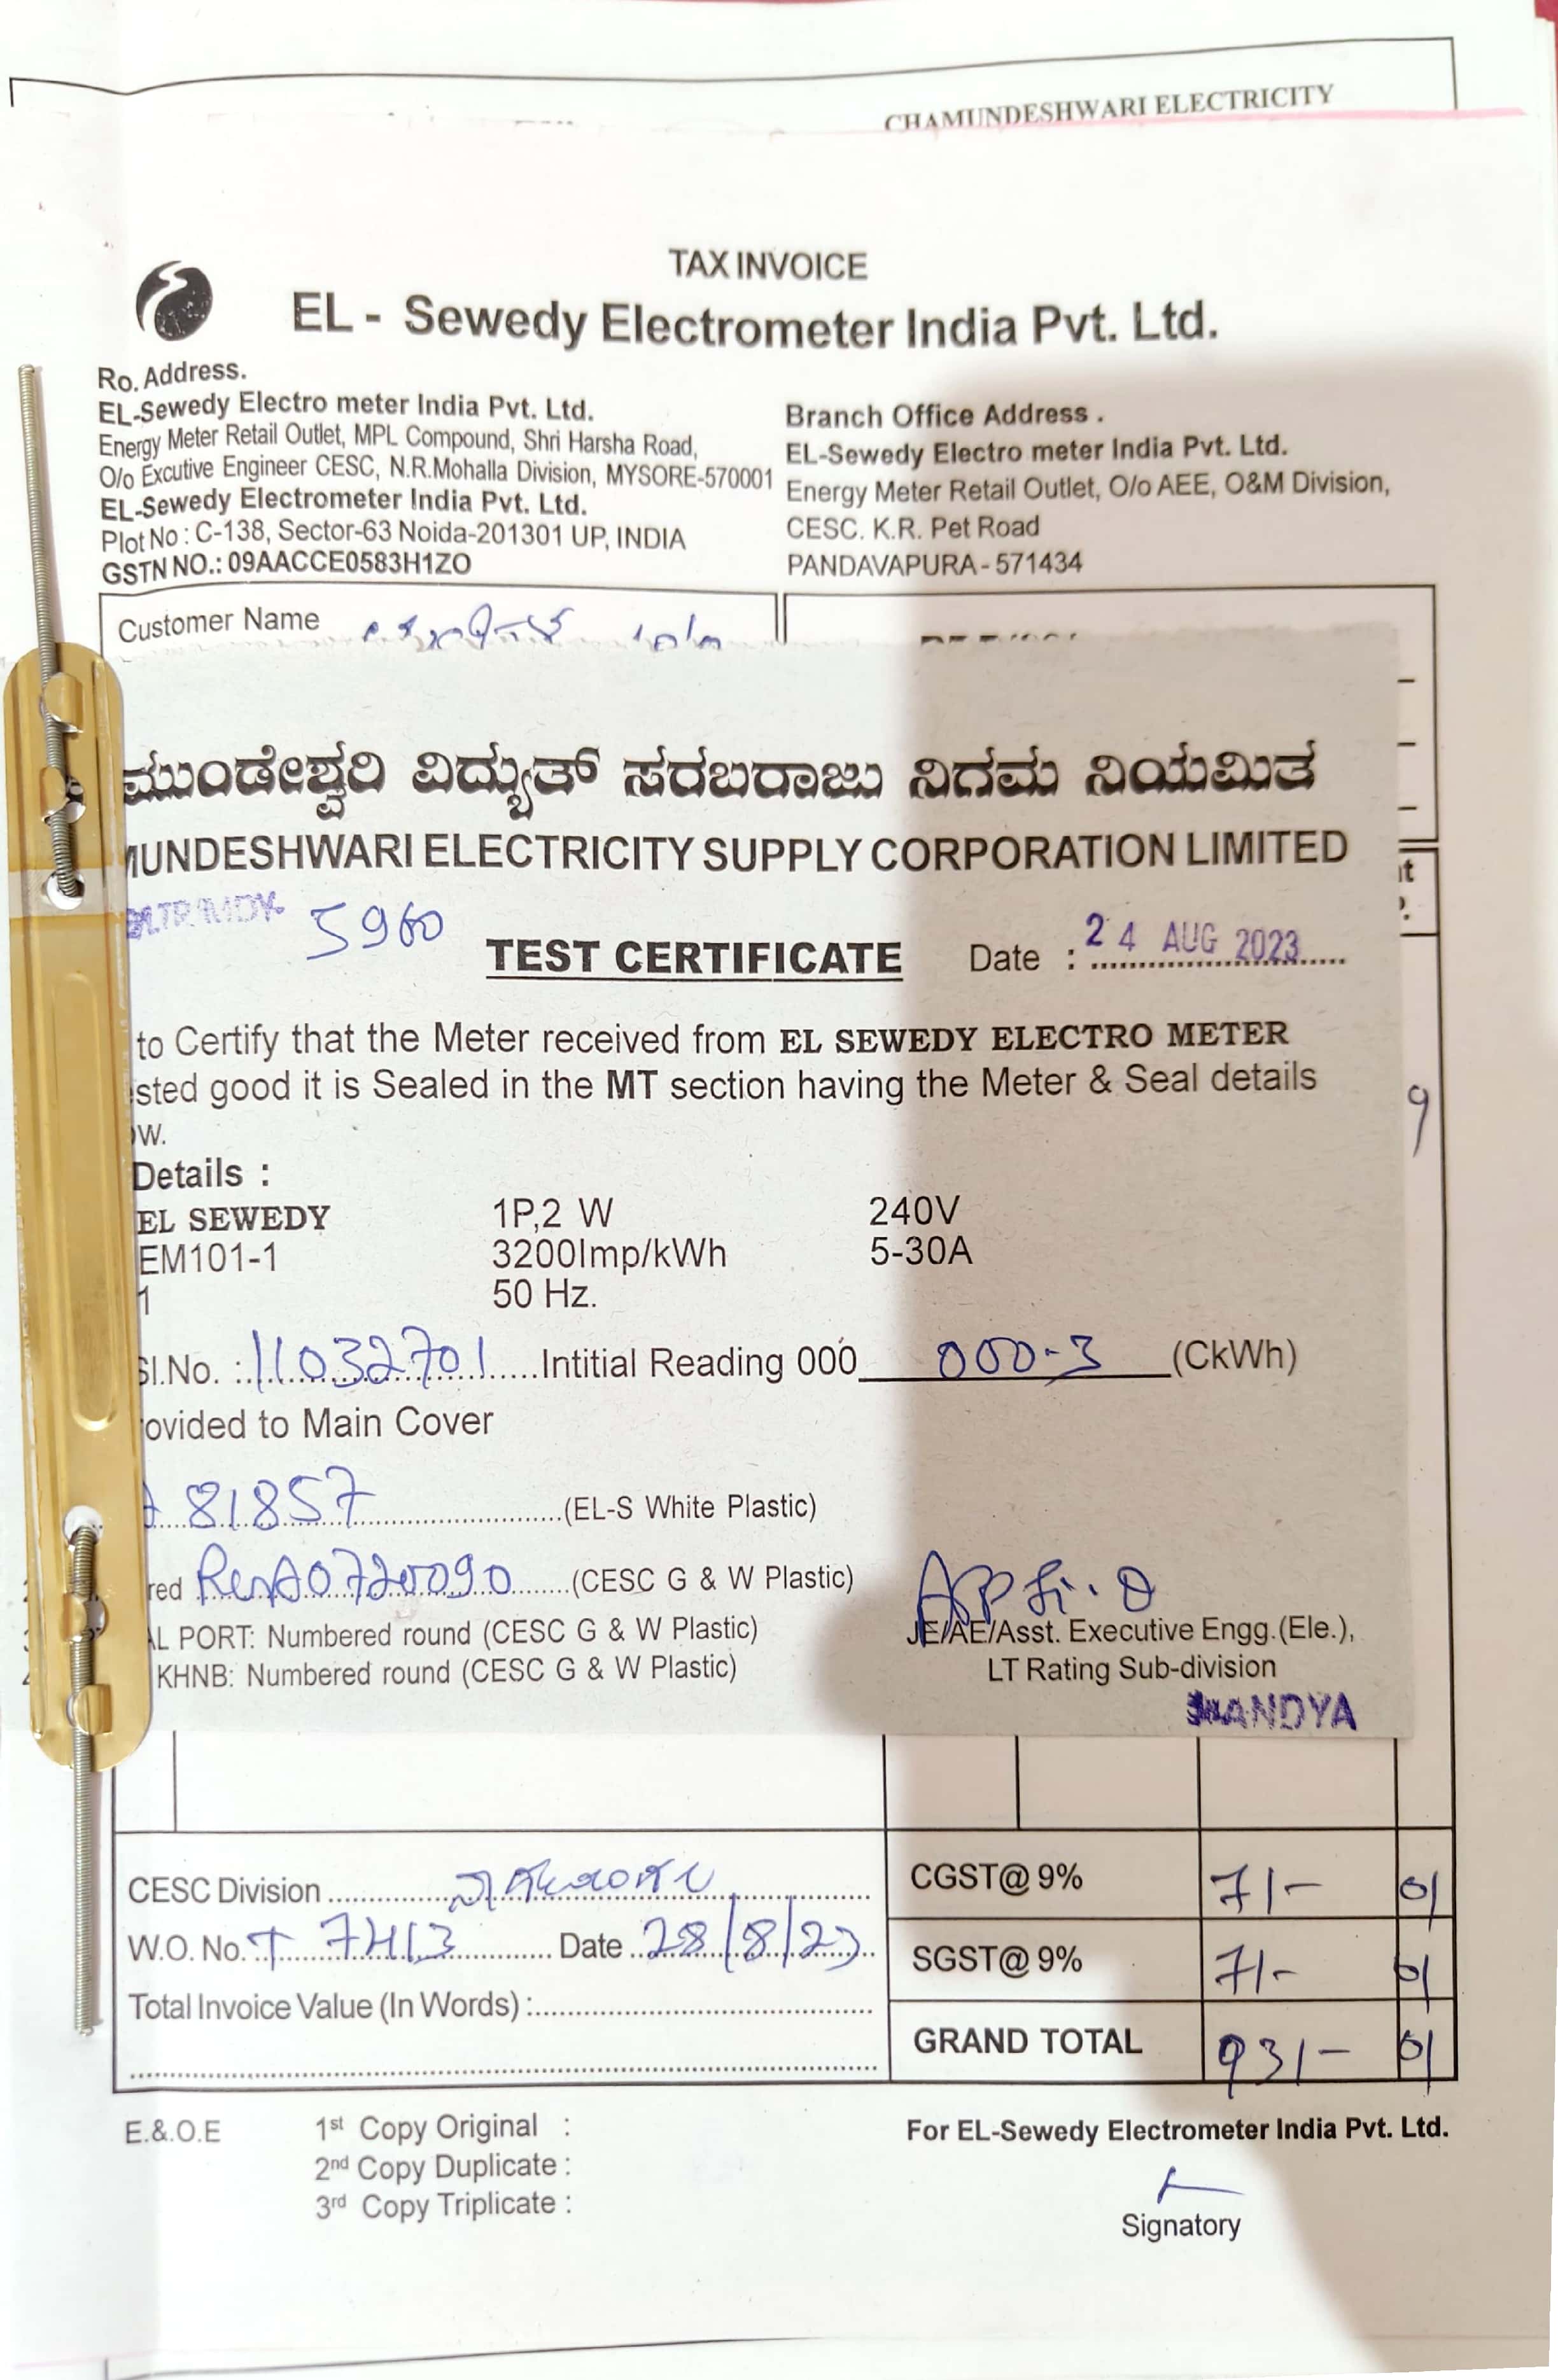 CHAMUNDESHWARI ELECTRICITY
TAX INVOICE
EL - Sewedy Electrometer India Pvt. Ltd.
Ro. Address.
EL-Sewedy Electro meter India Pvt. Ltd.
Energy Meter Retail Outlet, MPL Compound, Shri Harsha Road,
O/o Excutive Engineer CESC, N.R.Mohalla Division, MYSORE-570001
EL-Sewedy Electrometer India Pvt. Ltd.
Plot No : C-138, Sector-63 Noida-201301 UP, INDIA
GSTN NO.: 09AACCE0583H1ZO
Branch Office Address .
EL-Sewedy Electro meter India Pvt. Ltd.
Energy Meter Retail Outlet, O/o AEE, O&M Division,
CESC. K.R. Pet Road
PANDAVAPURA - 571434
Customer Name
ಮುಂಡೇಶ್ವರಿ ವಿದ್ಯುತ್ ಸರಬರಾಜು ನಿಗಮ ನಿಯಮಿತ
MUNDESHWARI ELECTRICITY SUPPLY CORPORATION LIMITED
5960
TEST CERTIFICATE Date : 24 AUG 2023
to Certify that the Meter received from EL SEWEDY ELECTRO METER
sted good it is Sealed in the MT section having the Meter & Seal details
ow.
Details :
EL SEWEDY 1P,2 W 240V
EM101-1 3200Imp/kWh 5-30A
1 50 Hz.
Sl.No. : 11032701 Intitial Reading 000 000-3 (CkWh)
ovided to Main Cover
81857 (EL-S White Plastic)
red A0720090 (CESC G & W Plastic)
AL PORT: Numbered round (CESC G & W Plastic)
KHNB: Numbered round (CESC G & W Plastic)
JE/AE/Asst. Executive Engg.(Ele.),
LT Rating Sub-division
MANDYA
CESC Division
W.O. No. T 7413 Date 28/8/23
Total Invoice Value (In Words) :
CGST@ 9% 71/- 01
SGST@ 9% 71- 01
GRAND TOTAL 931- 01
E.&.O.E
1st Copy Original :
2nd Copy Duplicate :
3rd Copy Triplicate :
For EL-Sewedy Electrometer India Pvt. Ltd.
Signatory